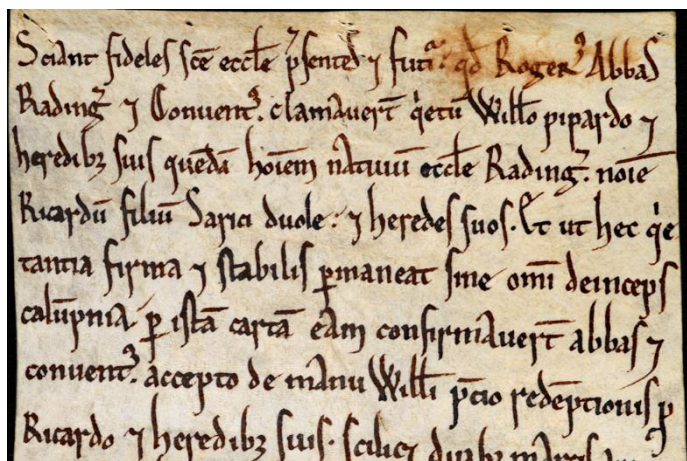 Sciant fideles scē eccłe p̄sentes ⁊ futᵃi. qđ Rogerꝰ Abbas
Rading̃ ⁊ Conventꝰ. clamaverт̄ qͥetū Willo pipardo ⁊
heredibꝫ suis quedā hoīem natiuū eccłe Rading̃. noīe
Ricardū filiū Sarici duole: ⁊ heredes suos. Et ut hec qͥe
tantia firma ⁊ stabilis ꝑmaneat sine omī deinceps
calūpnia ꝑ istā cartā eam confirmauert̄ abbas ⁊
conuentꝰ. accepto de manu Willi p̄cio redēptionis ꝓ
Ricardo ⁊ heredibꝫ suis. scilicꝫ duabꝫ marcis